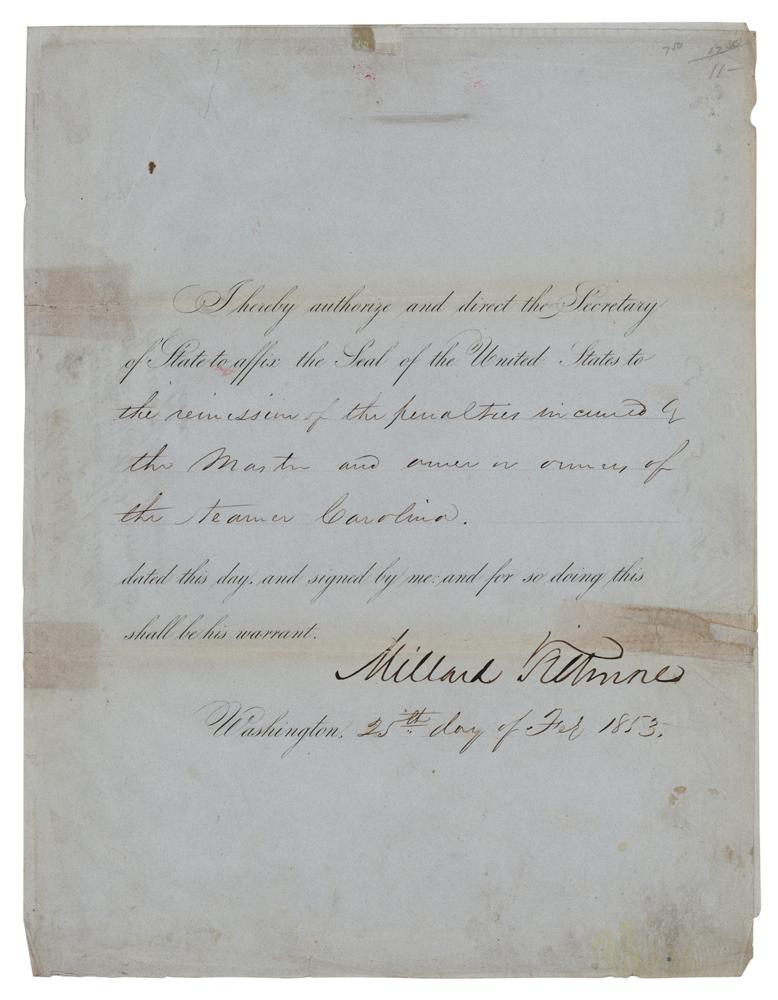 750 12.00
11-
I hereby authorize and direct the Secretary
of State to affix the Seal of the United States to
the remission of the penalties incurred by
the Master and owner or owners of
the steamer Carolina.
dated this day, and signed by me: and for so doing this
shall be his warrant.
Millard Fillmore
Washington, 25th day of Feb 1853.